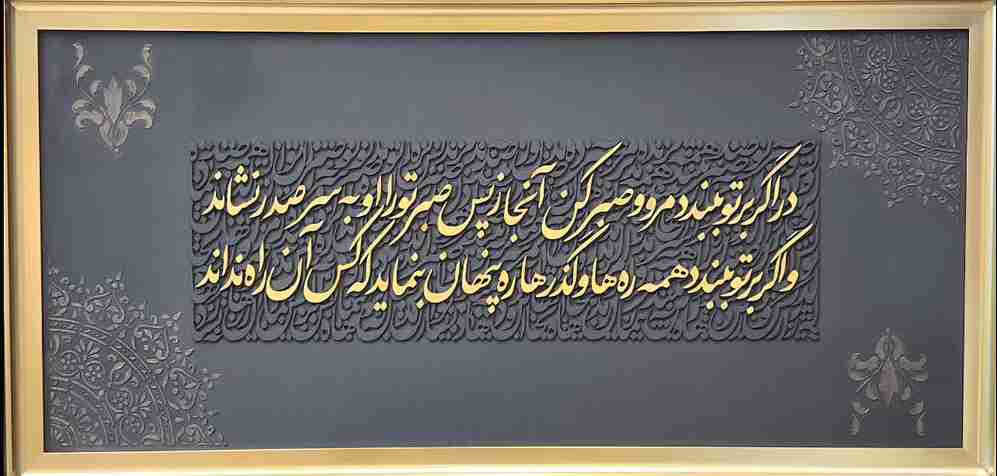 در اگر بر تو ببندد مرو و صبر کن آنجا ز پس صبر تو را او به سر صدر نشاند
و اگر بر تو ببندد همه ره ها و گذرها ره پنهان بنماید که کس آن راه نداند